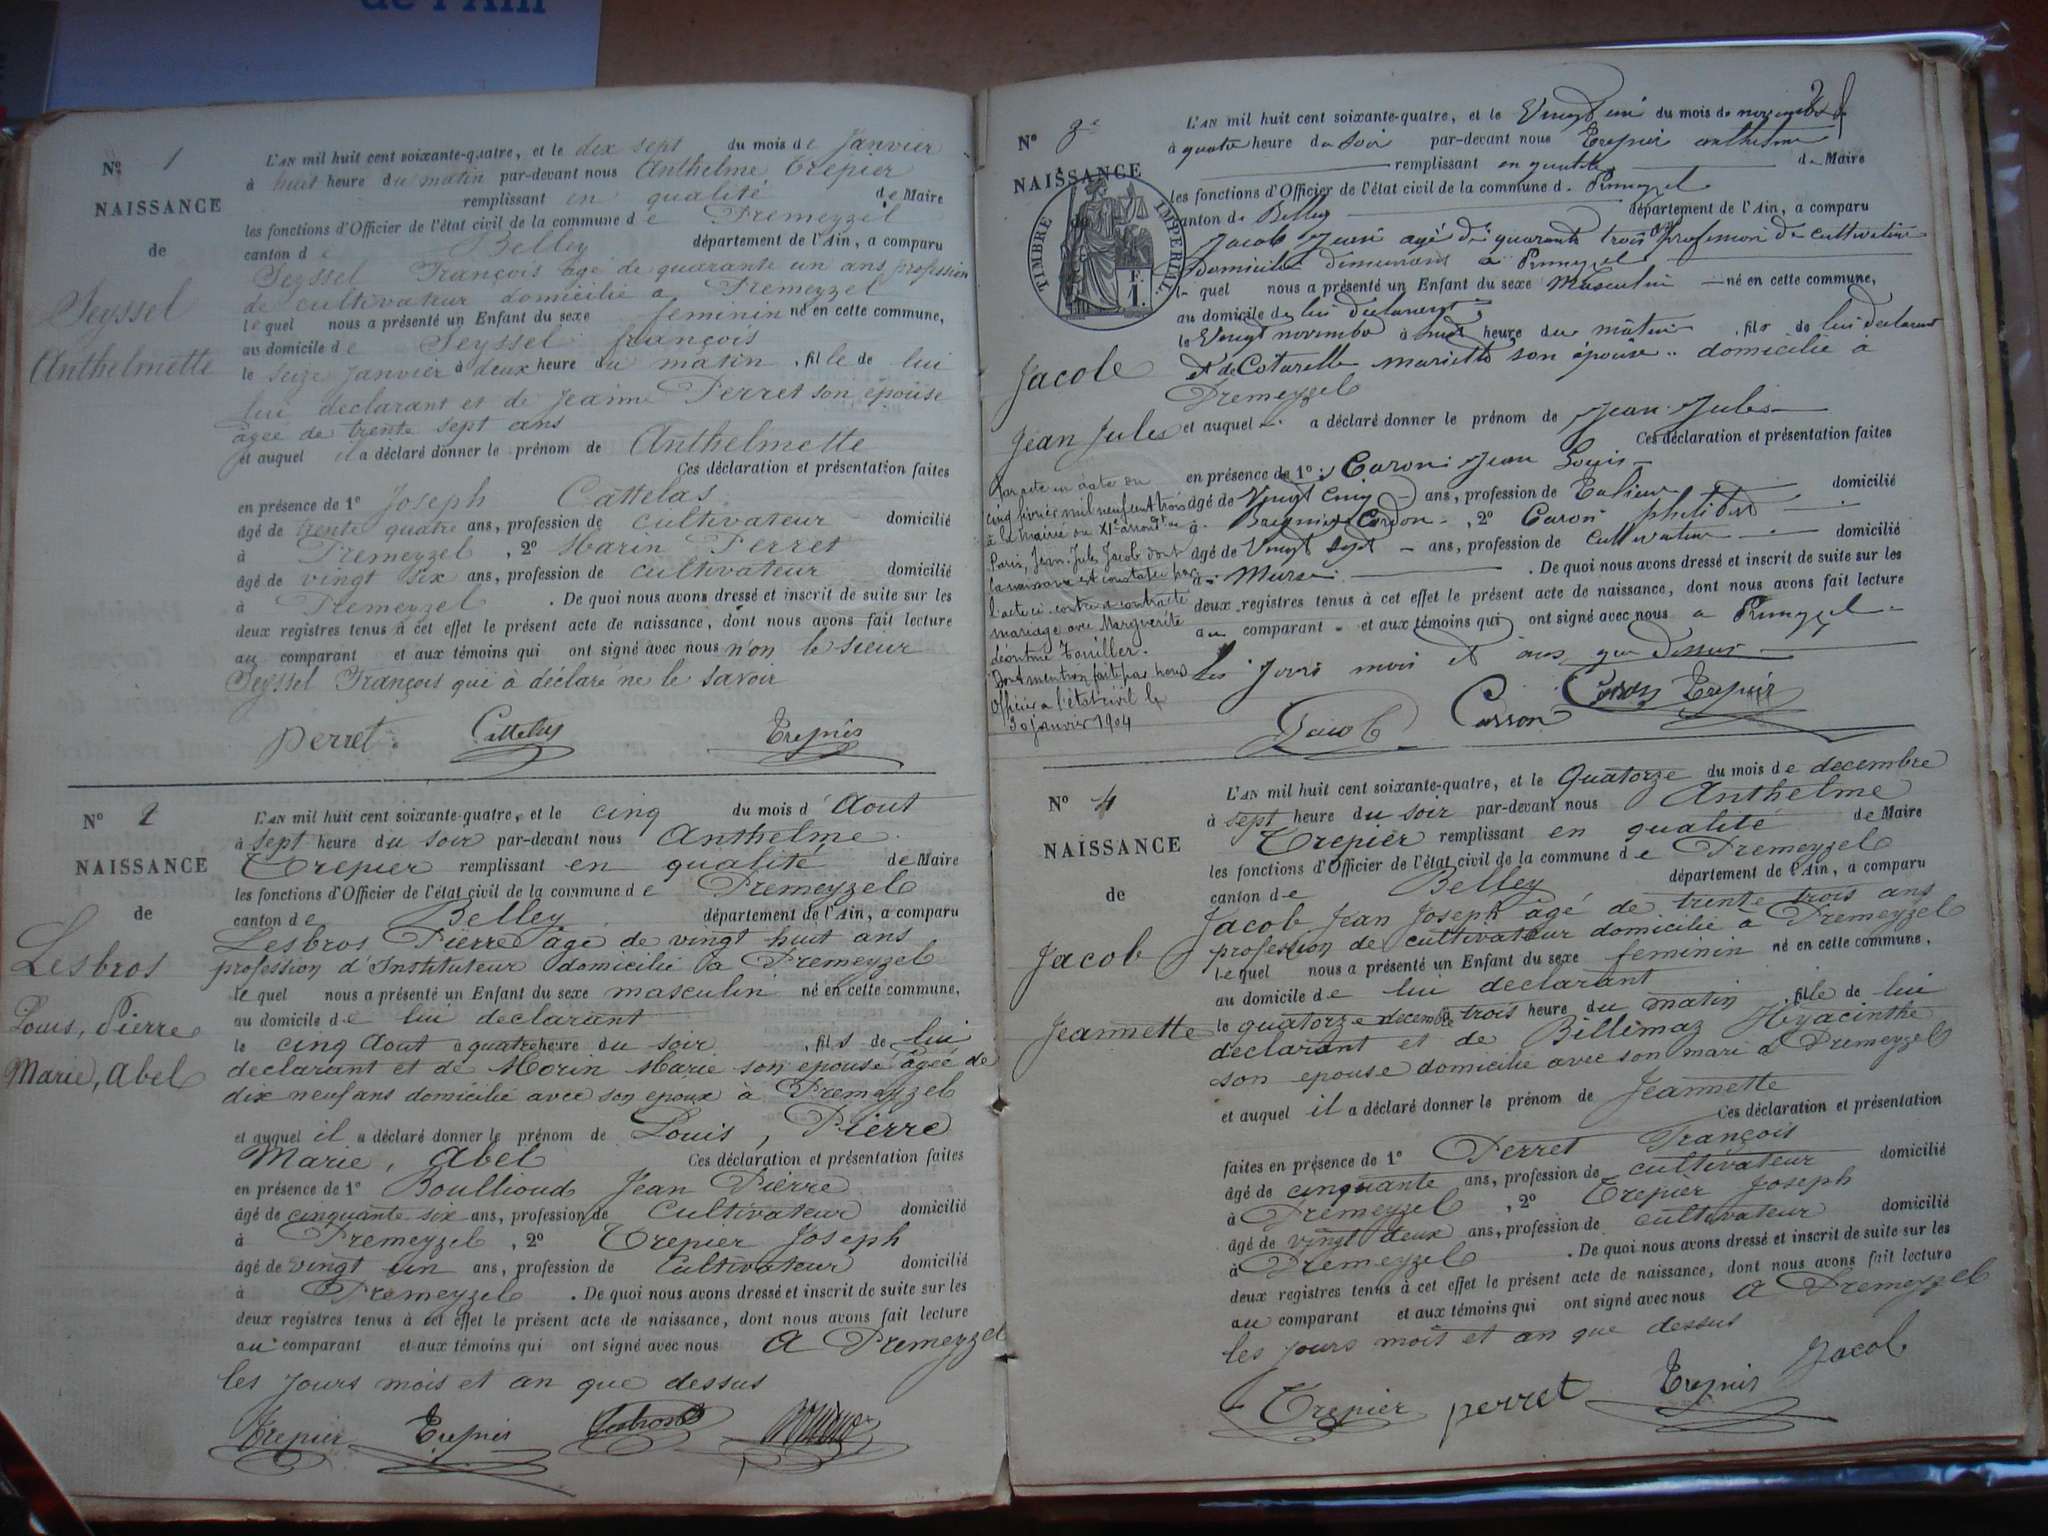 de l'Ain
Nº 1
NAISSANCE
de
Seyssel
Anthelmette
L'AN mil huit cent soixante-quatre, et le dix sept du mois de Janvier
à huit heure du matin par-devant nous Anthelme Trepier
remplissant en qualité de Maire
les fonctions d'Officier de l'état civil de la commune de Premeyzel
canton de Belley département de l'Ain, a comparu
Seyssel François agé de quarante un ans profession
de cultivateur domicilié a Premeyzel
le quel nous a présenté un Enfant du sexe feminin né en cette commune,
au domicile de Seyssel françois
le seize Janvier à deux heure du matin , fille de lui
lui declarant et de Jeanne Perret son épouse
agée de trente sept ans
et auquel il a déclaré donner le prénom de Anthelmette
Ces déclaration et présentation faites
en présence de 1º Joseph Cattelas
âgé de trente quatre ans, profession de cultivateur domicilié
à Premeyzel , 2º Marin Perret
âgé de vingt six ans, profession de cultivateur domicilié
à Premeyzel . De quoi nous avons dressé et inscrit de suite sur les
deux registres tenus à cet effet le présent acte de naissance, dont nous avons fait lecture
au comparant et aux témoins qui ont signé avec nous n'on le sieur
Seyssel François qui a déclaré ne le savoir
perret Cattelas Trepier
Nº 2
NAISSANCE
de
Lesbros
Louis, Pierre
Marie, Abel
L'AN mil huit cent soixante-quatre, et le cinq du mois d'Aout
à sept heure du soir par-devant nous Anthelme
Trepier remplissant en qualité de Maire
les fonctions d'Officier de l'état civil de la commune de Premeyzel
canton de Belley département de l'Ain, a comparu
Lesbros Pierre agé de vingt huit ans
profession d'Instituteur domicilié a Premeyzel
le quel nous a présenté un Enfant du sexe masculin né en cette commune,
au domicile de lui declarant
le cinq Aout à quatre heure du soir , fils de lui
declarant et de Morin Marie son epouse agée de
dix neuf ans domicilié avec son epoux à Premeyzel
et auquel il a déclaré donner le prénom de Louis, Pierre
Marie, Abel Ces déclaration et présentation faites
en présence de 1º Boullioud Jean Pierre
âgé de cinquante six ans, profession de Cultivateur domicilié
à Premeyzel , 2º Trepier Joseph
âgé de vingt un ans, profession de Cultivateur domicilié
à Premeyzel . De quoi nous avons dressé et inscrit de suite sur les
deux registres tenus à cet effet le présent acte de naissance, dont nous avons fait lecture
au comparant et aux témoins qui ont signé avec nous A Premeyzel
les jours mois et an que dessus
Trepier Trepier Lesbros
Nº 3e
NAISSANCE
de
TIMBRE IMPÉRIAL
F.
1.
Jacole
Jean Jules
Par acte en date du
cinq février mil neuf cent trois
à la mairie du XIe arrondt de
Paris, Jean Jules Jacob dont
la naissance est constatée par
l'acte ci-contre a contracté
mariage avec Marguerite
Léontine
Dont mention faite par nous
Officier de l'état civil le
30 Janvier 1904
L'AN mil huit cent soixante-quatre, et le Vingt un du mois de novembre
à quatre heure du soir par-devant nous Trepier anthelme
remplissant en qualité de Maire
les fonctions d'Officier de l'état civil de la commune d. Premeyzel
canton de Belley département de l'Ain, a comparu
Jacob Jean agé de quarante trois ans profession de cultivateur
Domicilié demeurant à Premeyzel
le quel nous a présenté un Enfant du sexe Masculin né en cette commune,
au domicile de lui declarant
le Vingt novembre à heure du matin , fils de lui declarant
et de Cotarelle mariette son épouse domicilié à
Premeyzel
et auquel a déclaré donner le prénom de Jean Jules
Ces déclaration et présentation faites
en présence de 1º Caron Jean Louis
âgé de Vingt cinq ans, profession de domicilié
à Bregnier Cordon , 2º Caron
âgé de Vingt sept ans, profession de Cultivateur domicilié
à Murs . De quoi nous avons dressé et inscrit de suite sur les
deux registres tenus à cet effet le présent acte de naissance, dont nous avons fait lecture
au comparant et aux témoins qui ont signé avec nous a Premeyzel
Les Jours mois et ans que Dessus
Jacob Carson Caron Trepier
Nº 4
NAISSANCE
de
Jacob
Jeannette
L'AN mil huit cent soixante-quatre, et le Quatorze du mois de decembre
à sept heure du soir par-devant nous Anthelme
Trepier remplissant en qualité de Maire
les fonctions d'Officier de l'état civil de la commune de Premeyzel
canton de Belley département de l'Ain, a comparu
Jacob Jean Joseph agé de trente trois ans
profession de cultivateur domicilié à Premeyzel
le quel nous a présenté un Enfant du sexe feminin né en cette commune,
au domicile de lui declarant
le quatorze decembre à trois heure du matin fille de lui
declarant et de Billemaz Hyacinthe
son epouse domicilié avec son mari à Premeyzel
et auquel il a déclaré donner le prénom de Jeannette
Ces déclaration et présentation
faites en présence de 1º Perret François
âgé de cinquante ans, profession de cultivateur domicilié
à Premeyzel , 2º Trepier Joseph
âgé de vingt deux ans, profession de cultivateur domicilié
à Premeyzel . De quoi nous avons dressé et inscrit de suite sur les
deux registres tenus à cet effet le présent acte de naissance, dont nous avons fait lecture
au comparant et aux témoins qui ont signé avec nous A Premeyzel
les jours mois et an que dessus
Trepier perret Trepier Jacob